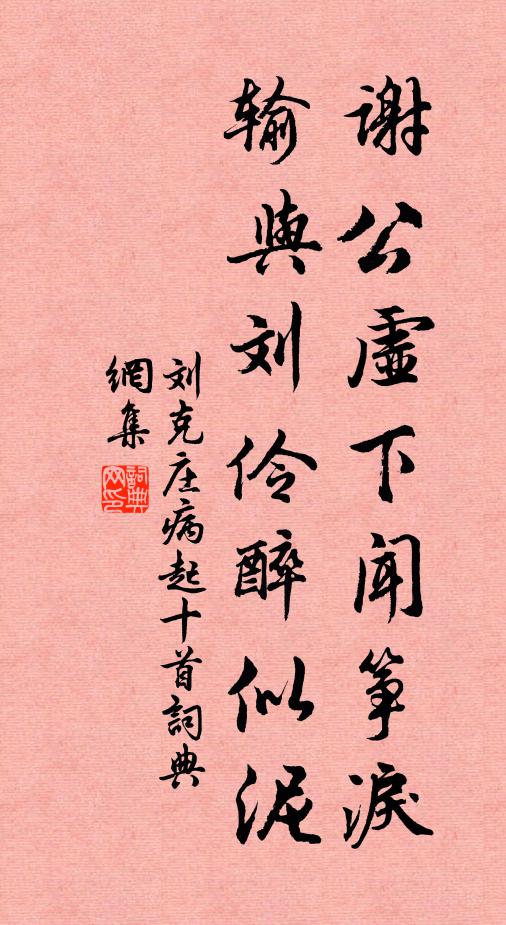 谢公虚下闻筝淚
输與刘伶醉似泥
刘克庄病起十首詞典
網集
詞典
网印